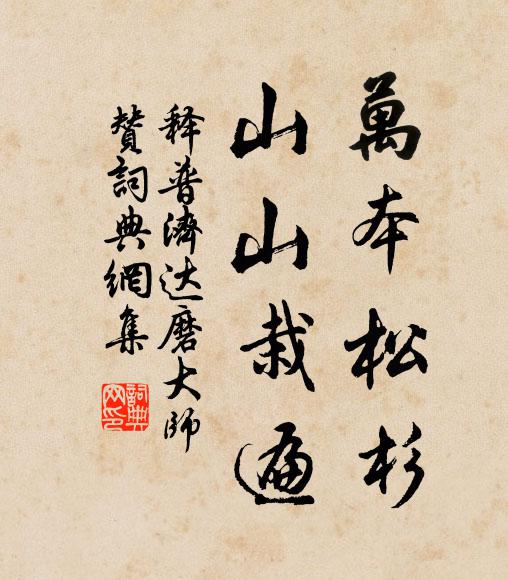 萬本松杉
山山栽遍
释普濟达磨大師
贊詞典網集
詞典
网印